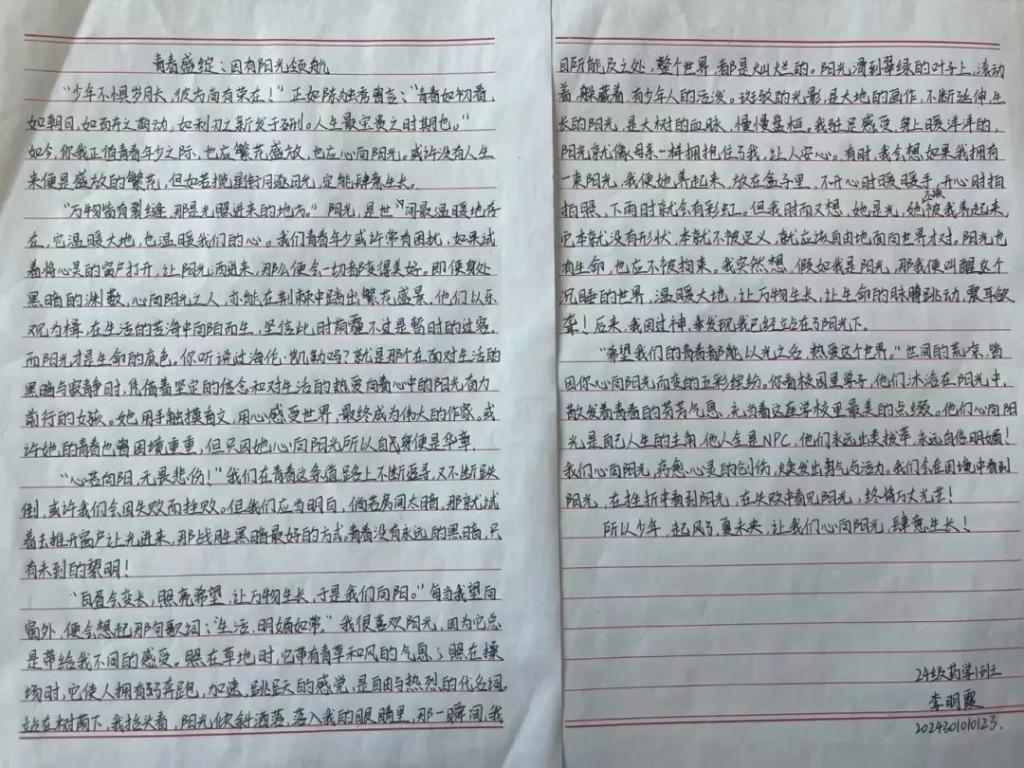 青春盛绽：因有阳光领航
“少年不惧岁月长，彼方尚有荣在！”正如陈独秀曾言：“青春如初春，
如朝日，如百卉之萌动，如利刃之新发于硎。人生最宝贵之时期也。”
如今，你我正值青春年少之际，也应繁花盛放，也应心向阳光。或许没有人生
来便是盛放的繁花，但如若揽星衔月逐日光，定能肆意生长。
“万物皆有裂缝，那是光照进来的地方。”阳光，是世间最温暖地存
在，它温暖大地，也温暖我们的心。我们青春年少或许常有困扰，如果试
着将心灵的窗户打开，让阳光洒进来，那么便会一切都变得美好。即使身处
黑暗的渊薮，心向阳光之人，亦能在荆棘中踏出繁花盛景，他们以乐
观为楫，在生活的苦海中向阳而生，坚信此时荫霾不过是暂时的过客，
而阳光才是生命的底色。你听说过海伦·凯勒吗？就是那个在面对生活的
黑暗与寂静时，凭借着坚定的信念和对生活的热爱向着心中的阳光奋力
前行的女孩。她用手触摸盲文，用心感受世界，最终成为伟大的作家。或
许她的青春也曾困境重重，但只因她心向阳光所以自身便是华章。
“心若向阳，无畏悲伤！”我们在青春这条道路上不断追寻，又不断跌
倒，或许我们会因失败而挫败。但我们应当明白，倘若房间太暗，那就试
着去推开窗户让光进来，那战胜黑暗最好的方式，青春没有永远的黑暗，只
有未到的黎明！
“白昼会变长，照亮希望，让万物生长，于是我们向阳。”每当我望向
窗外，便会想起那句歌词：“生活，明媚如常。”我很喜欢阳光，因为它总
是带给我不同的感受。照在草地时，它带有青草和风的气息；照在操
场时，它使人拥有弱奔跑，加速，跳跃的感觉，是自由与热烈的代名词。
站在树荫下，我抬头看，阳光倾斜洒落，落入我的眼睛里，那一瞬间，我
目所能及之处，整个世界都是灿烂的。阳光滑到翠绿的叶子上，滚动
着，躲藏着，有少年人的活泼。斑驳的光影，是大地的画作，不断延伸，生
长的阳光，是大树的血脉，慢慢盘桓。我驻足感受，身上暖洋洋的，
阳光就像母亲一样拥抱住了我，让人安心。有时，我会想如果我拥有
一束阳光，我便她养起来，放在盒子里，不开心时暖暖手，开心时拍
拍照，下雨时就会有彩虹。但我时而又想，她是光，她被我养起来，
它本就没有形状，本就不被定义，就应该自由地面向世界才对。阳光也
有生命，也应不被拘束。我突然想，假如我是阳光，那我便叫醒这个
沉睡的世界，温暖大地，让万物生长，让生命的脉搏跳动，震耳欲
聋！后来，我回过神，发现我已经站在了阳光下。
“希望我们的青春都能以光之名，热爱这个世界。”世间的荒凉，皆
因你心向阳光而变的五彩缤纷。你看校园里学子，他们沐浴在阳光中，
散发着青春的芬芳气息，充当着这座学校里最美的点缀。他们心向阳
光，是自己人生的主角，他人全是NPC，他们永远出类拔萃，永远自信明媚！
我们心向阳光，病愈心灵的创伤，焕发出朝气与活力。我们会在困境中看到
阳光，在挫折中看到阳光，在失败中看见阳光，终将万丈光芒！
所以少年，起风了，更未央，让我们心向阳光，肆意生长！
24级药学1班
李明霞
202430101023.